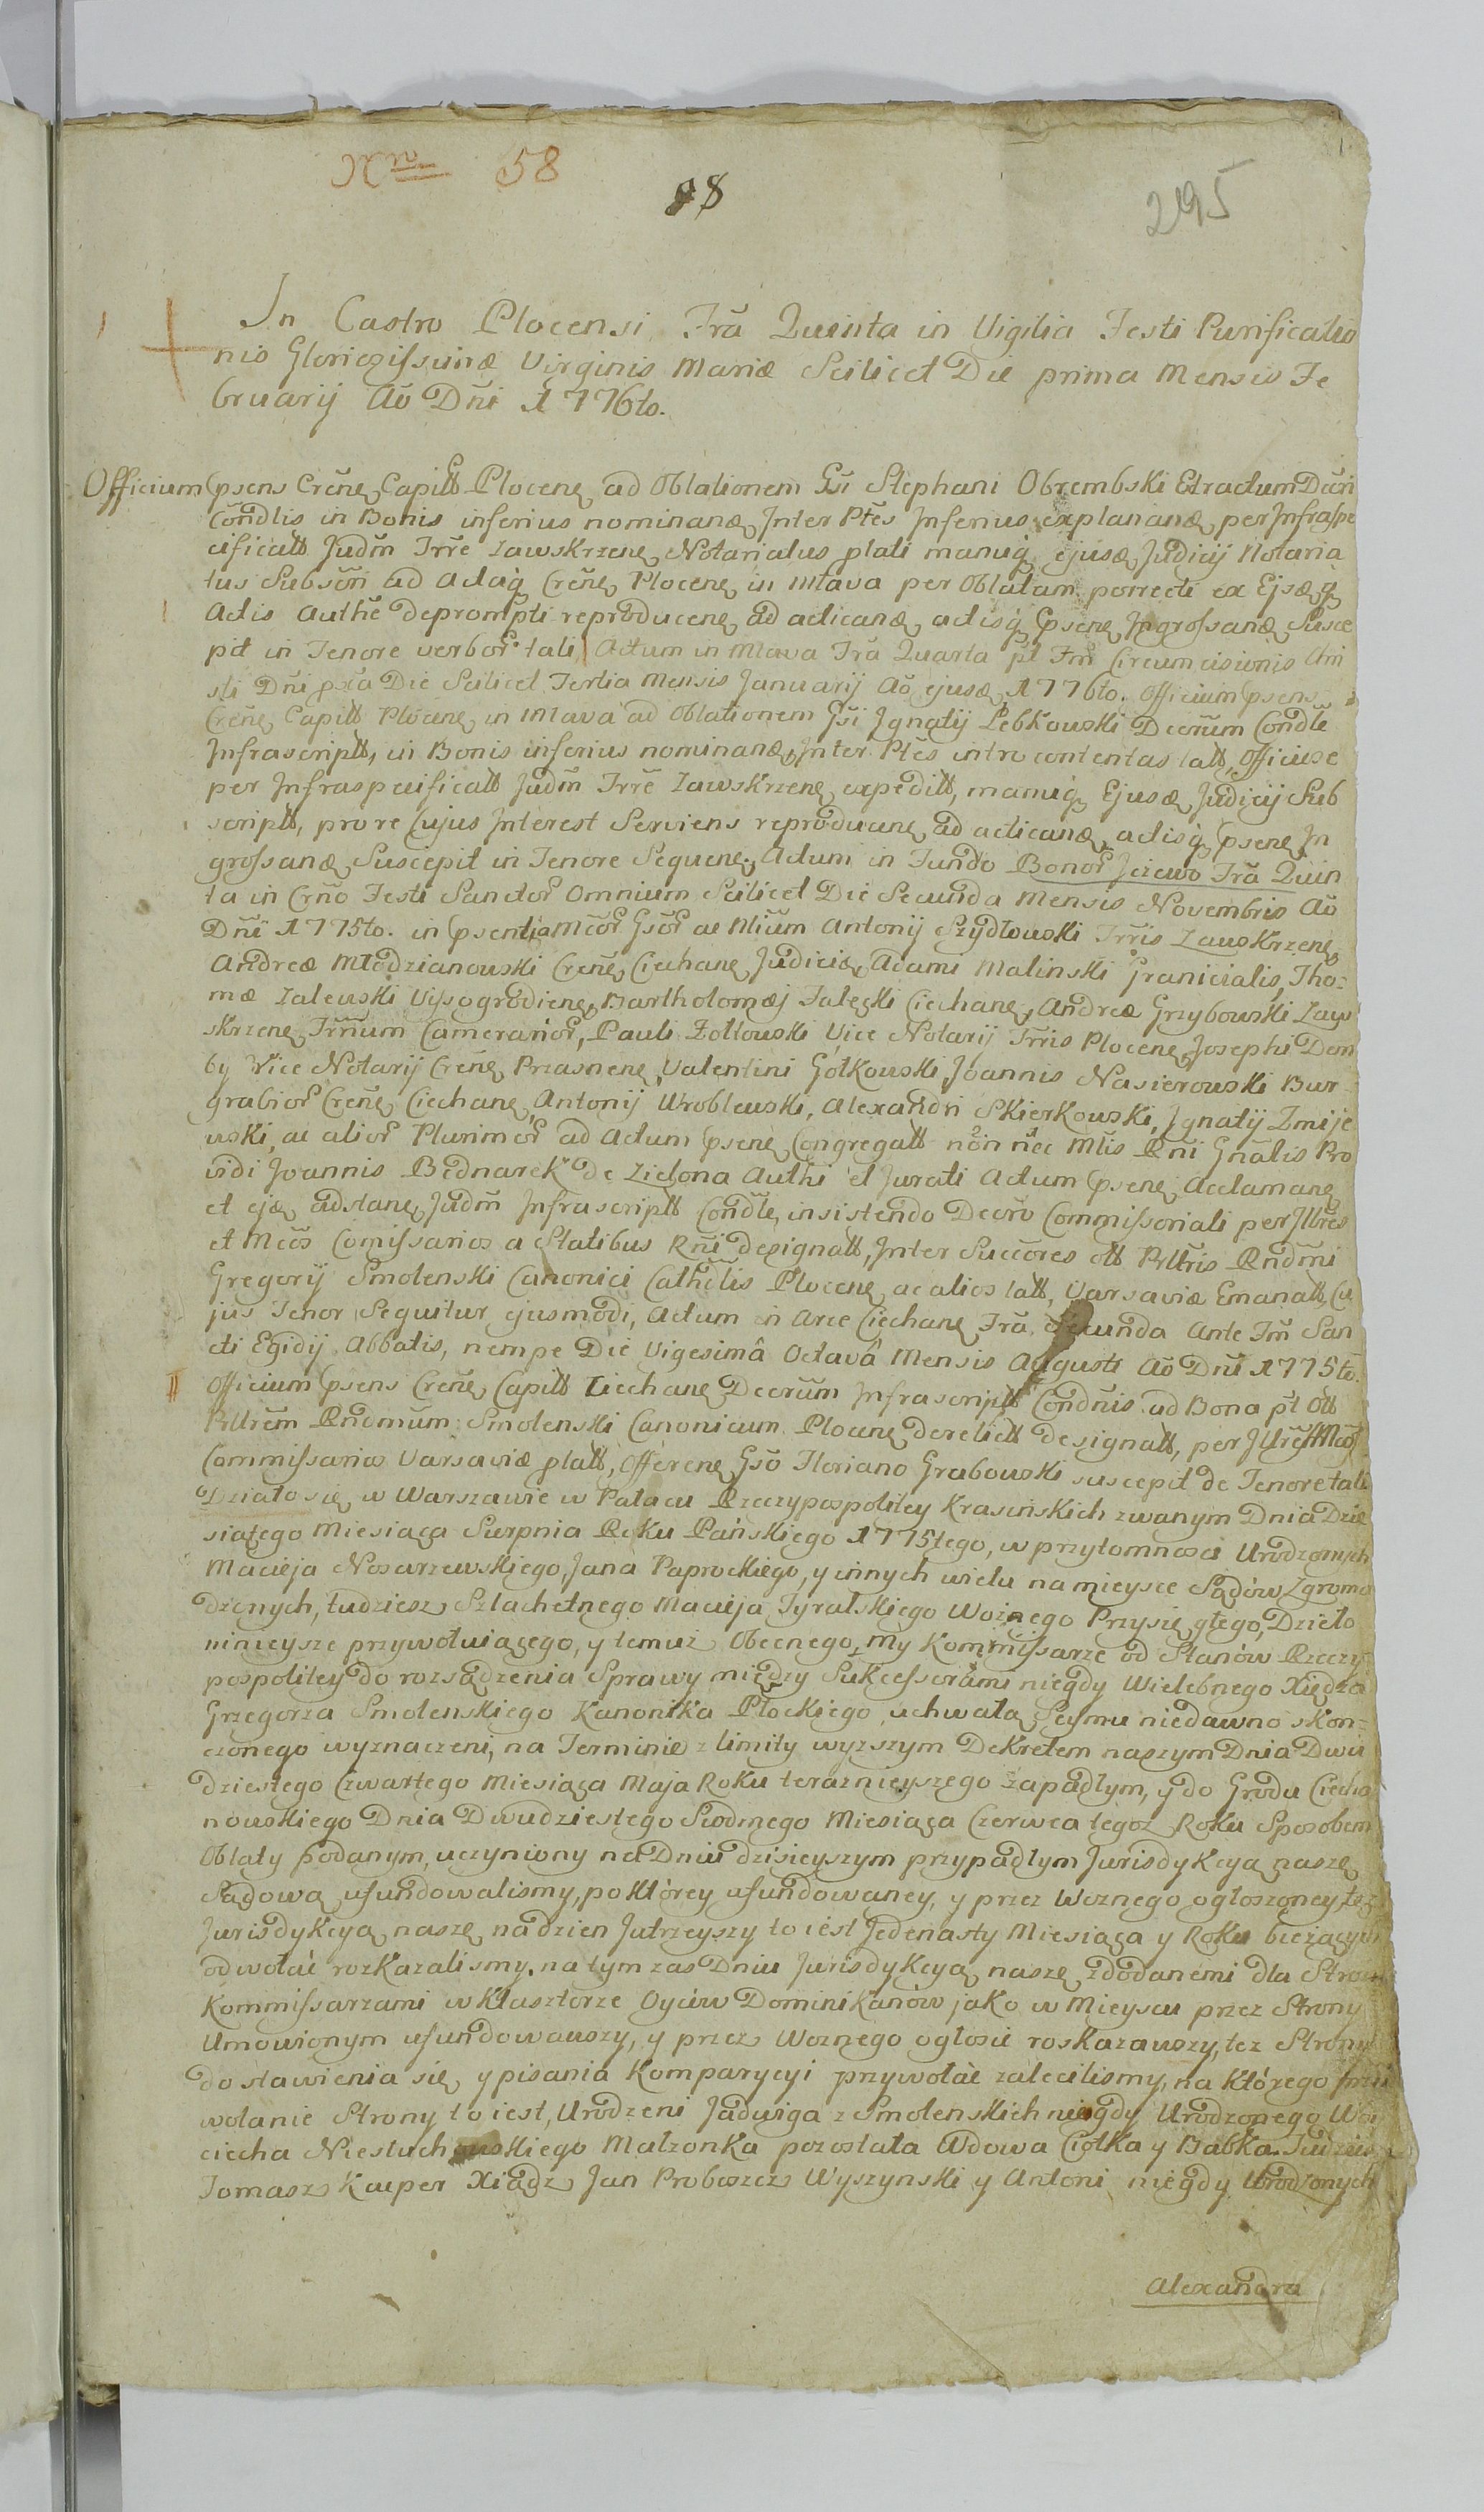 Nro 58
98
295
In Castro Plocensi Fra Quinta in Vigilia Festi Purificatio
nis Gloriozissimæ Virginis Mariæ Scilicet Die prima Mensis Fe
bruarij Ao Dñi 1776to.
Officium psens Creñe Capitt Plocene ad Oblationem Gsi Stephani Obrembski Extractum Dcri
Condlis in Bonis inferius nominanæ Inter Ptes Inferius explananæ per Infraspe
cificatt Judm Trre Zawskrzene Notariatus plati manuq ejusæ Judicij Notaria
tus Subscri ad Actaq Creñe Plocene in Mlava per Oblatam porrecti ex Ejsæq
Actis Authe deprompti reproducene ad acticanæ actisq psene Ingrossanæ Susce
pit in Tenore verbor tali Actum in Mlava Fra Quarta pt Fm Circumcisionis Chri
sti Dñi pxa Die Scilicet Tertia Mensis Januarij Ao ejusæ 1776to. Officium psens
Creñe Capitt Plocene in Mlava ad Oblationem Gsi Ignatij Lebkowski Decrum Condle
Infrascriptt, in Bonis inferius nominanæ, Inter Ptes intro contentas latt, Officiose
per Infraspecificatt Judm Trre Zawskrzene expeditt, manuq Ejusæ Judicij Sub
scriptt, pro re Cujus Interest Serviens reproducene ad acticanæ, actisq psene In
grossanæ Suscepit in Tenore Sequene, Actum in Fundo Bonor Jezewo Fra Quin
ta in Crño Festi Sanctor Omnium Scilicet Die Secunda Mensis Novembris Ao
Dñi 1775to. in psentia Mcor Gsor ac Nlium Antonij Szydłowski Trris Zawskrzene,
Andreæ Młodzianowski Creñe Ciechane Judiciæ, Adami Malinski Granicialis, Tho=
mæ Zalewski Vysogrodiene, Bartholomæj Faleçki Ciechane, Andreæ Grzybowski Zaw
skrzene Trrum Camerarior, Pauli Zołtowski Vice Notarij Trris Plocene, Josephi Dem
by Vice Notarij Creñe Przasnene, Valentini Gółkowski, Joannis Nasierowski Bur=
grabior Creñe Ciechane, Antonij Wroblewski, Alexandri Skierkowski, Ignatij Zmije
wski, ac alior Plurimor ad Actum psene Congregatt non nec Mtis Rñi Gñalis Pro
vidi Joannis Bednarek de Zielona Authi et Jurati Actum psene Acclamane
et ejæ adstane, Judm Infrascriptt Condle, insistendo Decro Commissoriali per Illres
et Mcos Comissarios a Statibus Rñi designatt, Inter Succores ott Pllris Rndmi
Gregorij Smolenski Canonici Cathdlis Plocene ac alios latt, Varsaviæ Emanatt, Cu
jus Tenor Sequitur ejusmodi, Actum in Arce Ciechane Fra Secunda Ante Fm San
cti Egidij Abbatis, nempe Die Vigesimâ Octavâ Mensis Augusti Ao Dñi 1775to.
Officium psens Creñe Capitt Ciechane Decrum Infrascriptt Condnis ad Bona pt ott
Pllrem Rndmum Smolenski Canonicum Plocene derelictt designatt, per Illres Mcos
Commissarios Varsaviæ platt, Offerene Gso Floriano Grabowski suscepit de Tenore tali
Działo się w Warszawie w Pałacu Rzeczypospolitey Krasińskich zwanym Dnia Dzie
siątego Miesiąca Sierpnia Roku Pańskiego 1775tego, w przytomnosci Urodzonych
Macieja Nosarzewskiego, Jana Paprockiego, y innych wielu na mieysce Sądów Zgroma
dzonych, tudziesz Szlachetnego Macieja Tyralskiego Woznego Przysięgłego, Dzieło
ninieysze przywołuiącego, y temuż Obecnego, My Kommissarze od Stanów Rzeczy
pospolitey do rozsądzenia Sprawy między Sukcessorami niegdy Wielebnego Xiędza
Grzegorza Smolenskiego Kanonika Płockiego, uchwałą Seymu niedawno skon=
czonego wyznaczeni, na Terminie z limity wyzszym Dekretem naszym Dnia Dwu
dziestego Czwartego Miesiąca Maja Roku teraznieyszego zapadłym, y do Grodu Ciecha
nowskiego Dnia Dwudziestego Siodmego Miesiąca Czerwca tegoz Roku Sposobem
Oblaty podanym, uczyniony na Dniu dzisieyszym przypadłym Jurisdykcyą naszę
Sądową ufundowalismy, po którey ufundowaney, y przez Woznego ogłoszoney, tęz
Jurisdykcyą naszę na dzien Jutrzeyszy to iest Jedenasty Miesiąca y Roku bieżących
odwołać rozkazalismy, na tym zas Dniu Jurisdykcyą naszę zdodanemi dla Stron
Kommissarzami w Klasztorze Oyców Dominikanów jako w Mieyscu przez Strony
Umowionym ufundowawszy, y przez Woznego ogłosić roskazawszy, tez Strony
do stawienia się y pisania Komparycyi przywołać zalecilismy, na którego przy
wołanie Strony to iest, Urodzeni Jadwiga z Smolenskich niegdy Urodzonego Woy
ciecha Niestuchowskiego Małzonka pozostała Wdowa Ciotka y Babka. Tudziesz
Tomasz Kacper Xiądz Jan Proboszcz Wyszynski y Antoni niegdy Urodzonych
Alexandra